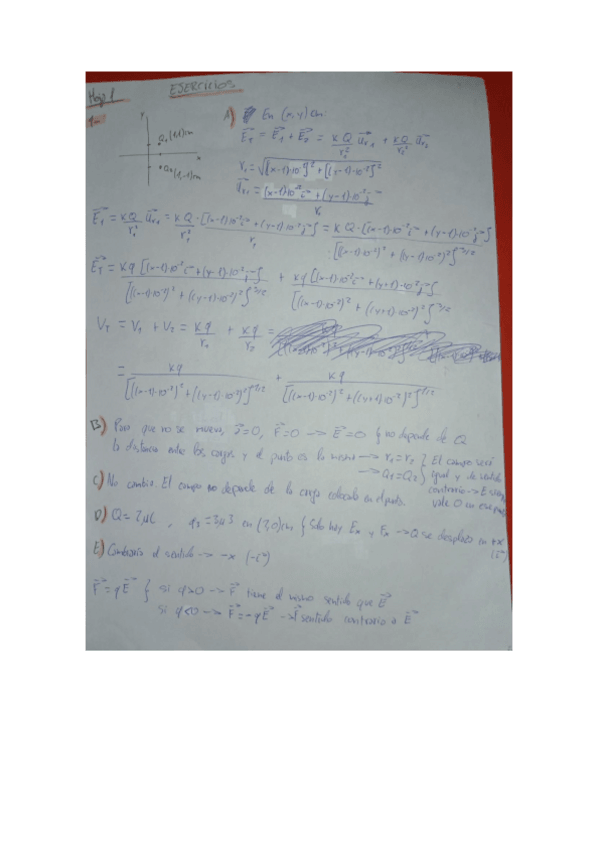 Hoja 1 EJERCICIOS
1.-
y
Q₁(1,1)cm
x
Q₂(1,-1)cm
A) En (x,y)cm:
E⃗_T = E⃗₁ + E⃗₂ = KQ/r₁² u⃗_r1 + KQ/r₂² u⃗_r2
r₁ = √([(x-1)·10⁻²]² + [(y-1)·10⁻²]²)
u⃗_r1 = [(x-1)·10⁻² i⃗ + (y-1)·10⁻² j⃗] / r₁
E⃗₁ = KQ/r₁² u⃗_r1 = KQ/r₁² · [(x-1)·10⁻² i⃗ + (y-1)·10⁻² j⃗]/r₁ = KQ·[(x-1)·10⁻² i⃗ + (y-1)·10⁻² j⃗] / [((x-1)·10⁻²)² + ((y-1)·10⁻²)²]^3/2
E⃗_T = Kq[(x-1)·10⁻² i⃗ + (y-1)·10⁻² j⃗] / [((x-1)·10⁻²)² + ((y-1)·10⁻²)²]^3/2 + Kq[(x-1)·10⁻² i⃗ + (y+1)·10⁻² j⃗] / [((x-1)·10⁻²)² + ((y+1)·10⁻²)²]^3/2
V_T = V₁ + V₂ = Kq/r₁ + Kq/r₂ =
= Kq / [((x-1)·10⁻²)² + ((y-1)·10⁻²)²]^1/2 + Kq / [((x-1)·10⁻²)² + ((y+1)·10⁻²)²]^1/2
B) Para que no se mueva, a⃗=0, F⃗=0 → E⃗=0 { no depende de Q
la distancia entre las cargas y el punto es la misma → r₁=r₂ } El campo será
→ Q₁=Q₂ } igual y de sentido
contrario → E
vale 0 en ese punto
C) No cambia. El campo no depende de la carga colocada en el punto.
D) Q=2μC, q₃=3μ3 en (3,0)cm { Solo hay Eₓ y Fₓ → Q se desplaza en +x
(i⃗)
E) Cambiaría el sentido → -x (-i⃗)
F⃗=qE⃗ { si q>0 → F⃗ tiene el mismo sentido que E⃗
si q<0 → F⃗=-qE⃗ → F⃗ sentido contrario a E⃗